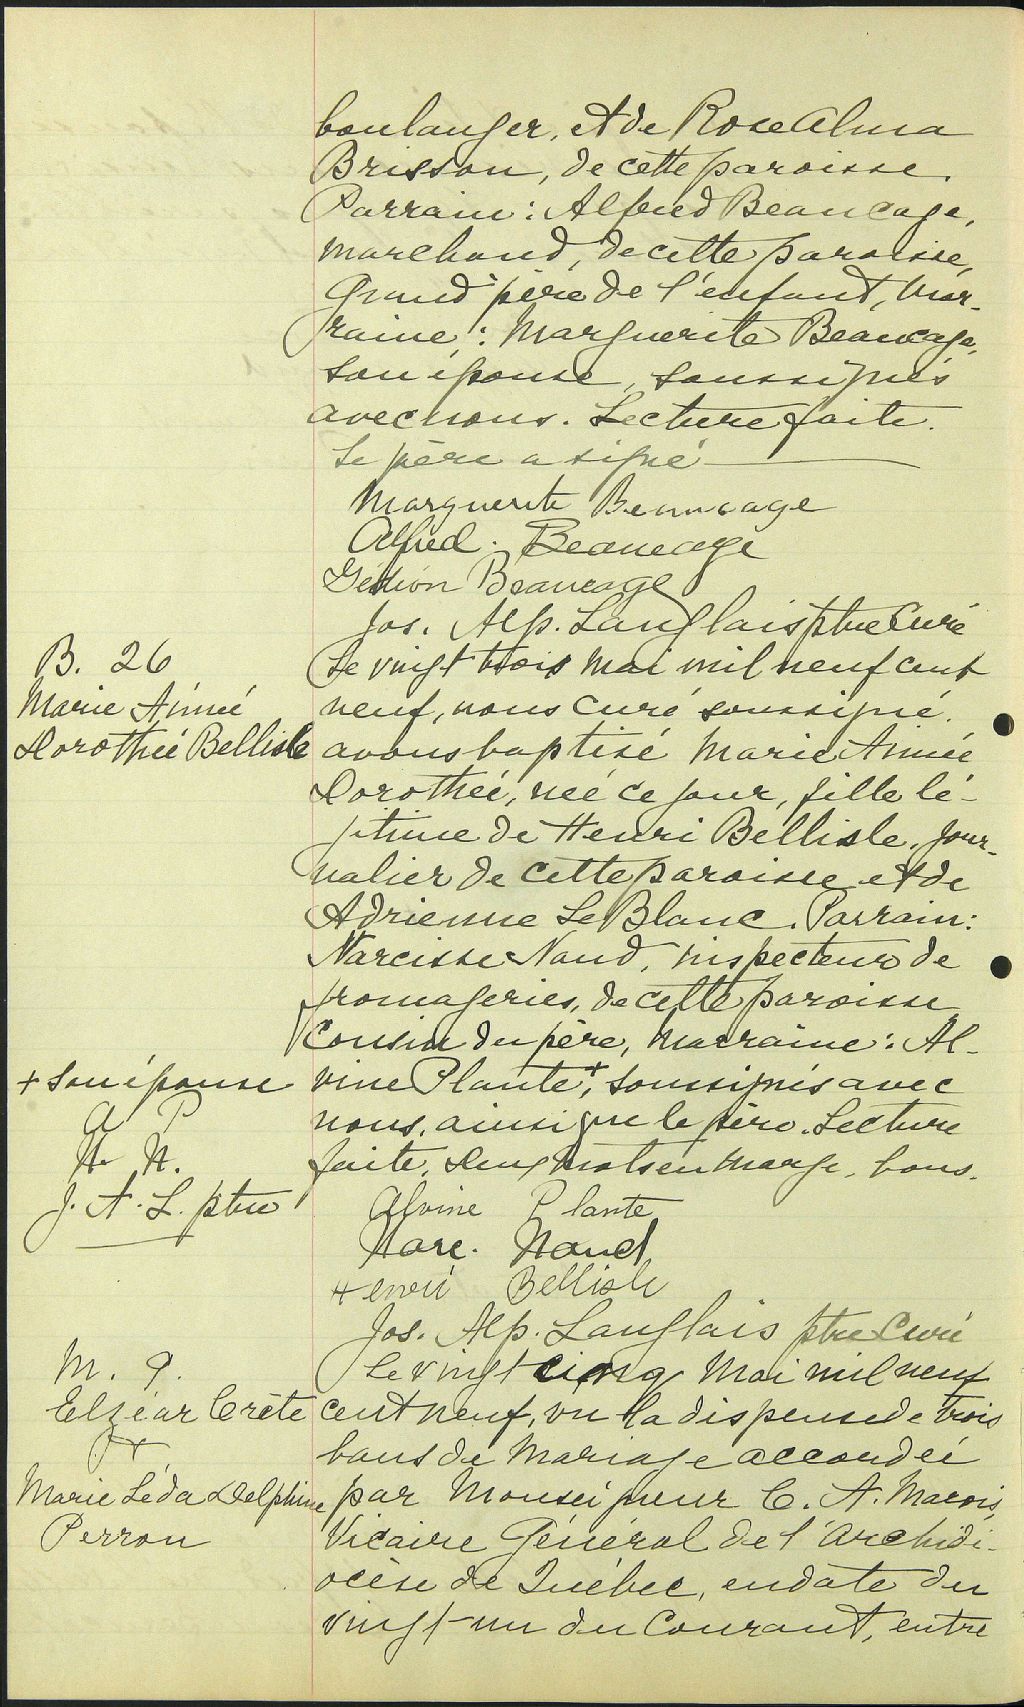 boulanger, et de Rose Alma
Brisson, de cette paroisse.
Parrain: Alfred Beaucage,
marchand, de cette paroisse,
Grand père de l'enfant, Mar-
raine: Marguerite Beaucage,
son épouse, soussignés
avec nous. Lecture faite.
Le père a signé
Marguerite Beaucage
Alfred. Beaucage
Gédéon Beaucage
Jos. Alp. Langlais ptre Curé
B. 26
Marie Aimée
Dorothée Bellisle
Le vingt trois Mai mil neuf cent
neuf, nous Curé soussigné.
avons baptisé Marie Aimée
Dorothée, née ce jour, fille lé-
gitime de Henri Bellisle. Jour-
nalier de cette paroisse et de
Adrienne LeBlanc. Parrain:
Narcisse Naud, inspecteur de
fromageries, de cette paroisse
Cousin du père, Marraine: Al-
vine Plante +, soussignés avec
nous, ainsi que le père. Lecture
faite. Deux mots en marge, bons.
+ son épouse
A P
N. N.
J. A. L. ptre
Alvine Plante
Narc. Naud
Henri Bellisle
Jos. Alp. Langlais ptre Curé
M. 9.
Elzéar Crête
&
Marie Léda Delphine
Perron
Le vingt cinq Mai mil neuf
cent neuf, vu la dispense de trois
bans de Mariage accordée
par Monseigneur C. A. Marois,
Vicaire Général de l'Archidi-
ocèse de Québec, en date du
vingt-un du Courant, entre